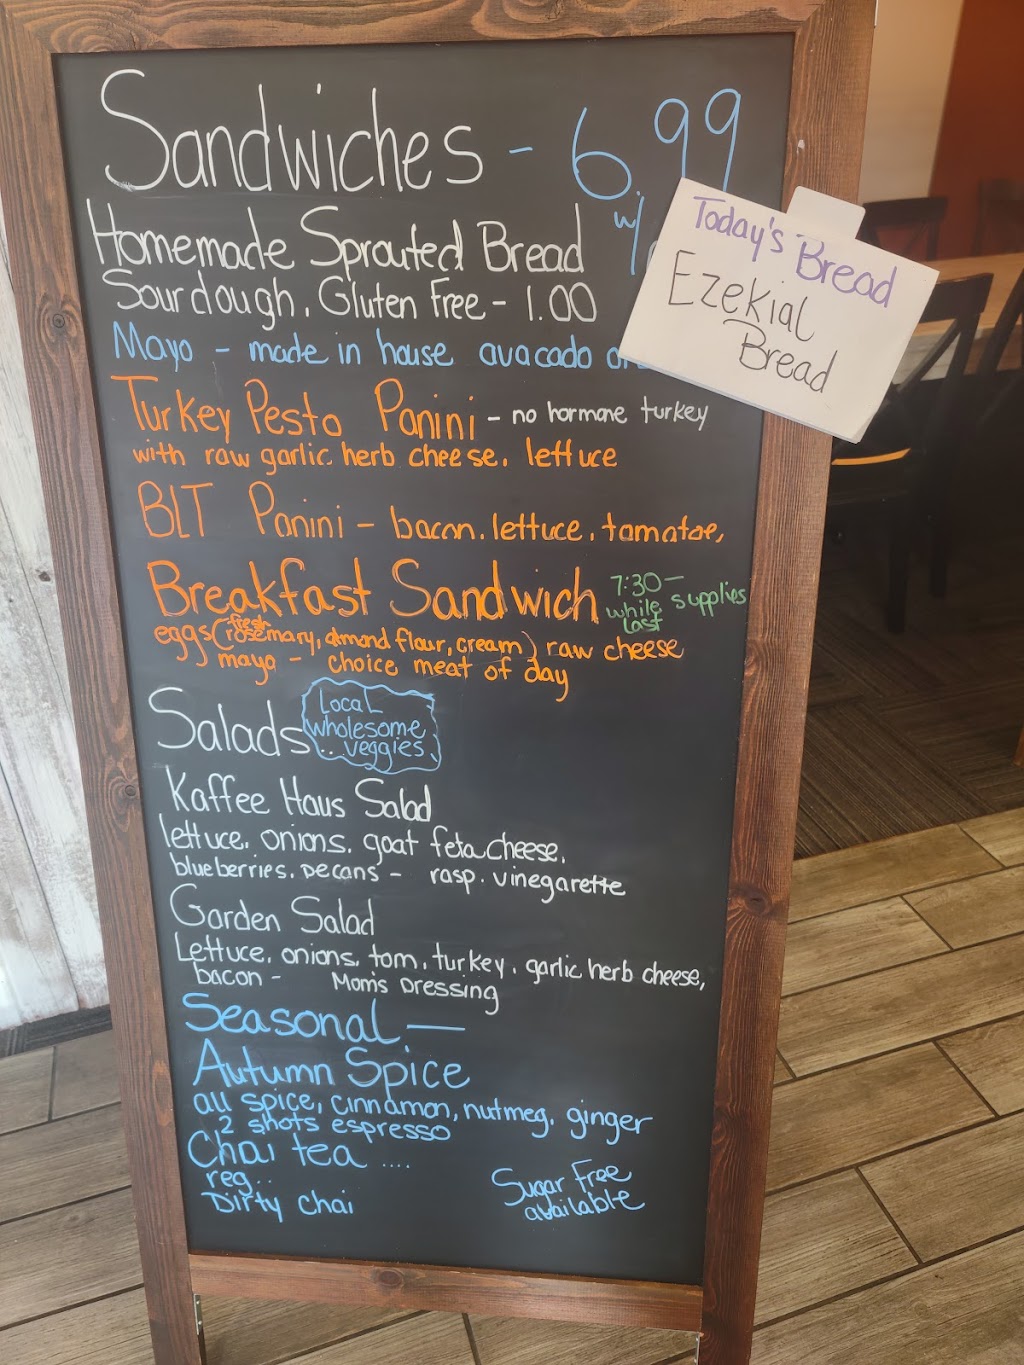 Sandwiches - 6.99
w/
Homemade Sprouted Bread
Sourdough, Gluten Free - 1.00
Mayo - made in house avacado
Today's Bread
Ezekial
Bread
Turkey Pesto Panini - no hormone turkey
with raw garlic herb cheese, lettuce
BLT Panini - bacon, lettuce, tomatoe,
Breakfast Sandwich 7:30 -
while supplies
last
fresh
eggs (rosemary, almond flour, cream) raw cheese
mayo - choice meat of day
Salads
Local
wholesome
veggies
Kaffee Haus Salad
lettuce, onions, goat feta cheese,
blueberries, pecans - rasp. vinegarette
Garden Salad
Lettuce, onions, tom, turkey, garlic herb cheese,
bacon - Mom's Dressing
Seasonal —
Autumn Spice
all spice, cinnamon, nutmeg, ginger
2 shots espresso
Chai tea ....
reg..
Dirty Chai
Sugar Free
available